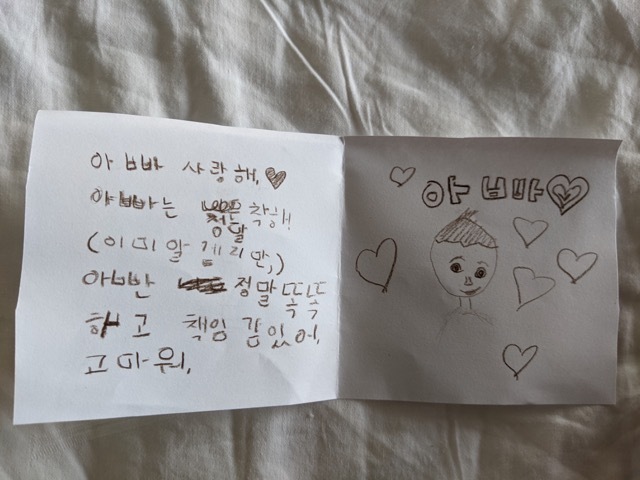 아빠 사랑해,
아빠는 정말 착해!
(이미
아빤 정말 똑똑
하고 책임감있어,
고마워,
아빠